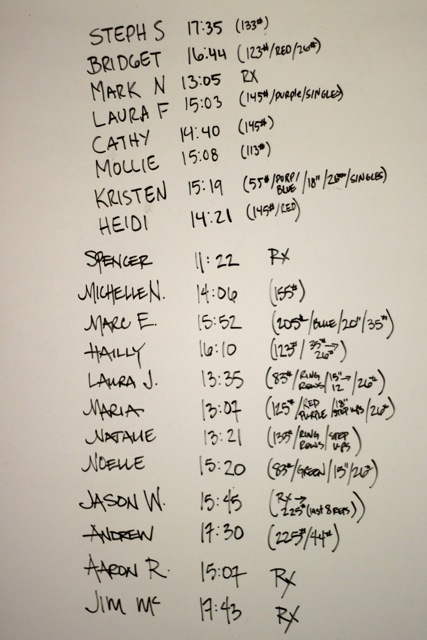 STEPH S 17:35 (133#)
BRIDGET 16:44 (123#/RED/26#)
MARK N 13:05 RX
LAURA F 15:03 (145#/PURPLE/SINGLES)
CATHY 14:40 (145#)
MOLLIE 15:08 (113#)
KRISTEN 15:19 (55#/PURP/BLUE/18"/26#/SINGLES)
HEIDI 14:21 (145#/RED)
SPENCER 11:22 RX
MICHELLE N. 14:06 (155#)
MARC E. 15:52 (205#/BLUE/20"/35#)
HAILLY 16:10 (123#/35#→26#)
LAURA J. 13:35 (83#/RING ROWS/15"→12/26#)
MARIA 13:07 (125#/RED PURPLE/18" STEP UPS/26#)
NATALIE 13:21 (135#/RING ROWS/STEP UPS)
NOELLE 15:20 (83#/GREEN/15"/26#)
JASON W. 15:45 (RX→225# (last 8 REPS))
ANDREW 17:30 (225#/44#)
AARON R. 15:07 RX
JIM MC 17:43 RX